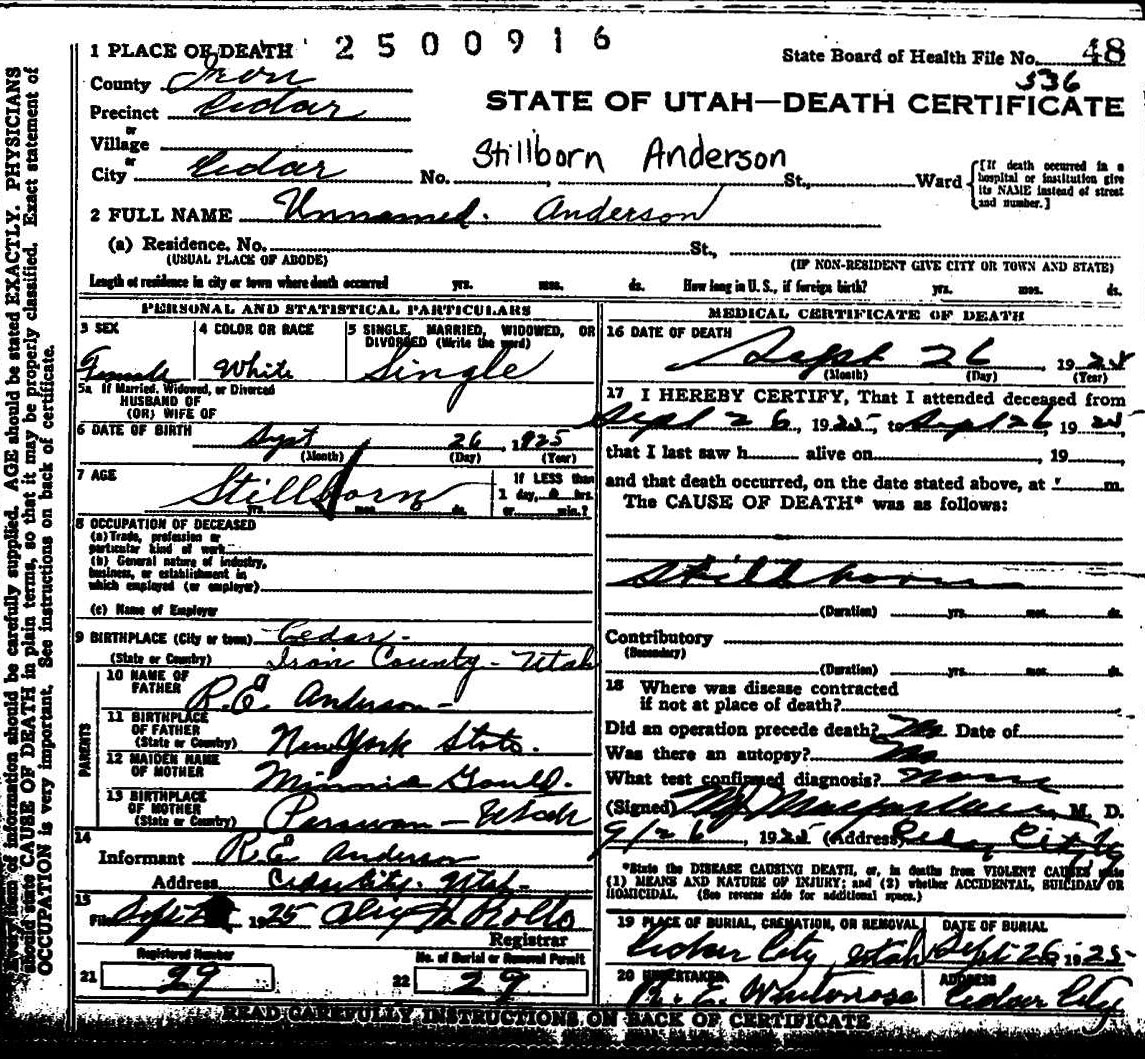 2500916
State Board of Health File No. 48
536
1 PLACE OF DEATH
County Iron
Precinct Cedar
or
Village
or
City Cedar No. St., Ward
STATE OF UTAH—DEATH CERTIFICATE
Stillborn Anderson
[If death occurred in a
hospital or institution give
its NAME instead of street
and number.]
2 FULL NAME Unnamed. Anderson
(a) Residence. No. St.,
(USUAL PLACE OF ABODE) (IF NON-RESIDENT GIVE CITY OR TOWN AND STATE)
Length of residence in city or town where death occurred yrs. mos. ds. How long in U. S., if foreign birth? yrs. mos. ds.
PERSONAL AND STATISTICAL PARTICULARS
3 SEX 4 COLOR OR RACE 5 SINGLE, MARRIED, WIDOWED, OR
DIVORCED (Write the word)
Female White Single
5a If Married, Widowed, or Divorced
HUSBAND OF
(OR) WIFE OF
6 DATE OF BIRTH Sept 26, 1925
(Month) (Day) (Year)
7 AGE If LESS than
Stillborn 1 day, hrs.
yrs. mos. ds. or min.?
8 OCCUPATION OF DECEASED
(a) Trade, profession or
particular kind of work
(b) General nature of industry,
business, or establishment in
which employed (or employer)
(c) Name of Employer
9 BIRTHPLACE (City or town) Cedar-
(State or Country) Iron County - Utah
PARENTS
10 NAME OF
FATHER R.E. Anderson -
11 BIRTHPLACE
OF FATHER
(State or Country) New York State.
12 MAIDEN NAME
OF MOTHER Minnie Gould.
13 BIRTHPLACE
OF MOTHER
(State or Country) Parowan - Utah
14
Informant R.E. Anderson
Address Cedar City. Utah-
15
Filed Sept 1925
Registrar
Registered Number No. of Burial or Removal Permit
21 29 22 29
MEDICAL CERTIFICATE OF DEATH
16 DATE OF DEATH
Sept 26 1925
(Month) (Day) (Year)
17 I HEREBY CERTIFY, That I attended deceased from
Sept 26, 1925, to Sept 26, 1925,
that I last saw h alive on , 19
and that death occurred, on the date stated above, at m.
The CAUSE OF DEATH* was as follows:
Stillborn
(Duration) yrs. mos. ds.
Contributory
(Secondary)
(Duration) yrs. mos. ds.
18 Where was disease contracted
if not at place of death?
Did an operation precede death? No Date of
Was there an autopsy? No
What test confirmed diagnosis? None
(Signed) Macfarlane, M. D.
9/26, 1925 (Address) Cedar City
*State the DISEASE CAUSING DEATH, or, in deaths from VIOLENT CAUSES state
(1) MEANS AND NATURE OF INJURY; and (2) whether ACCIDENTAL, SUICIDAL OR
HOMICIDAL. (See reverse side for additional space.)
19 PLACE OF BURIAL, CREMATION, OR REMOVAL DATE OF BURIAL
Cedar City Utah Sept 26 1925
20 UNDERTAKER ADDRESS
Cedar City
READ CAREFULLY INSTRUCTIONS ON BACK OF CERTIFICATE
Every item of information should be carefully supplied. AGE should be stated EXACTLY. PHYSICIANS
should state CAUSE OF DEATH in plain terms, so that it may be properly classified. Exact statement of
OCCUPATION is very important. See instructions on back of certificate.